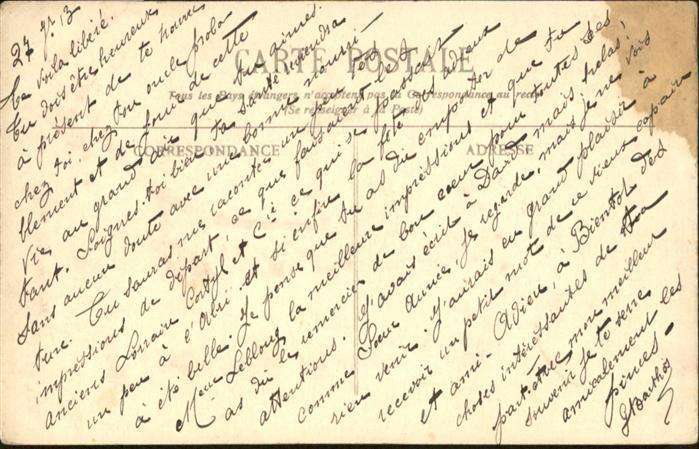 CARTE POSTALE
Tous les Pays étrangers n'acceptent pas la Correspondance au recto
(Se renseigner à la Poste)
CORRESPONDANCE
ADRESSE
27
Te voilà libéré.
Tu dois être heureux
à présent de te trouver
chez toi, chez ton oncle proba
blement et de jouir de cette
vie au grand air que tu aimes
tant. Soignes-toi bien ta santé reprendra
sans aucun doute avec une bonne nourri-
ture. Tu sauras me raconter un peu tes
impressions de départ, ce que faisaient les
anciens Lorrain et Cie ce qui se passait
un peu à l'Abri et si enfin la tête
à été belle. Je pense que tu as dû emporter de
Mme Leblong la meilleure impression et que tu
as dû la remercier de bon cœur pour toutes ses
attentions. J'avais écrit à David mais hélas!
comme Sœur Anne, je regarde, mais je ne vois
rien venir. J'aurais un grand plaisir à
recevoir un petit mot de ce vieux copain
et ami. Adieu, à Bientôt des
choses intéressantes de ta
part. mon meilleur
souvenir je te serre
amicalement les
pinces.